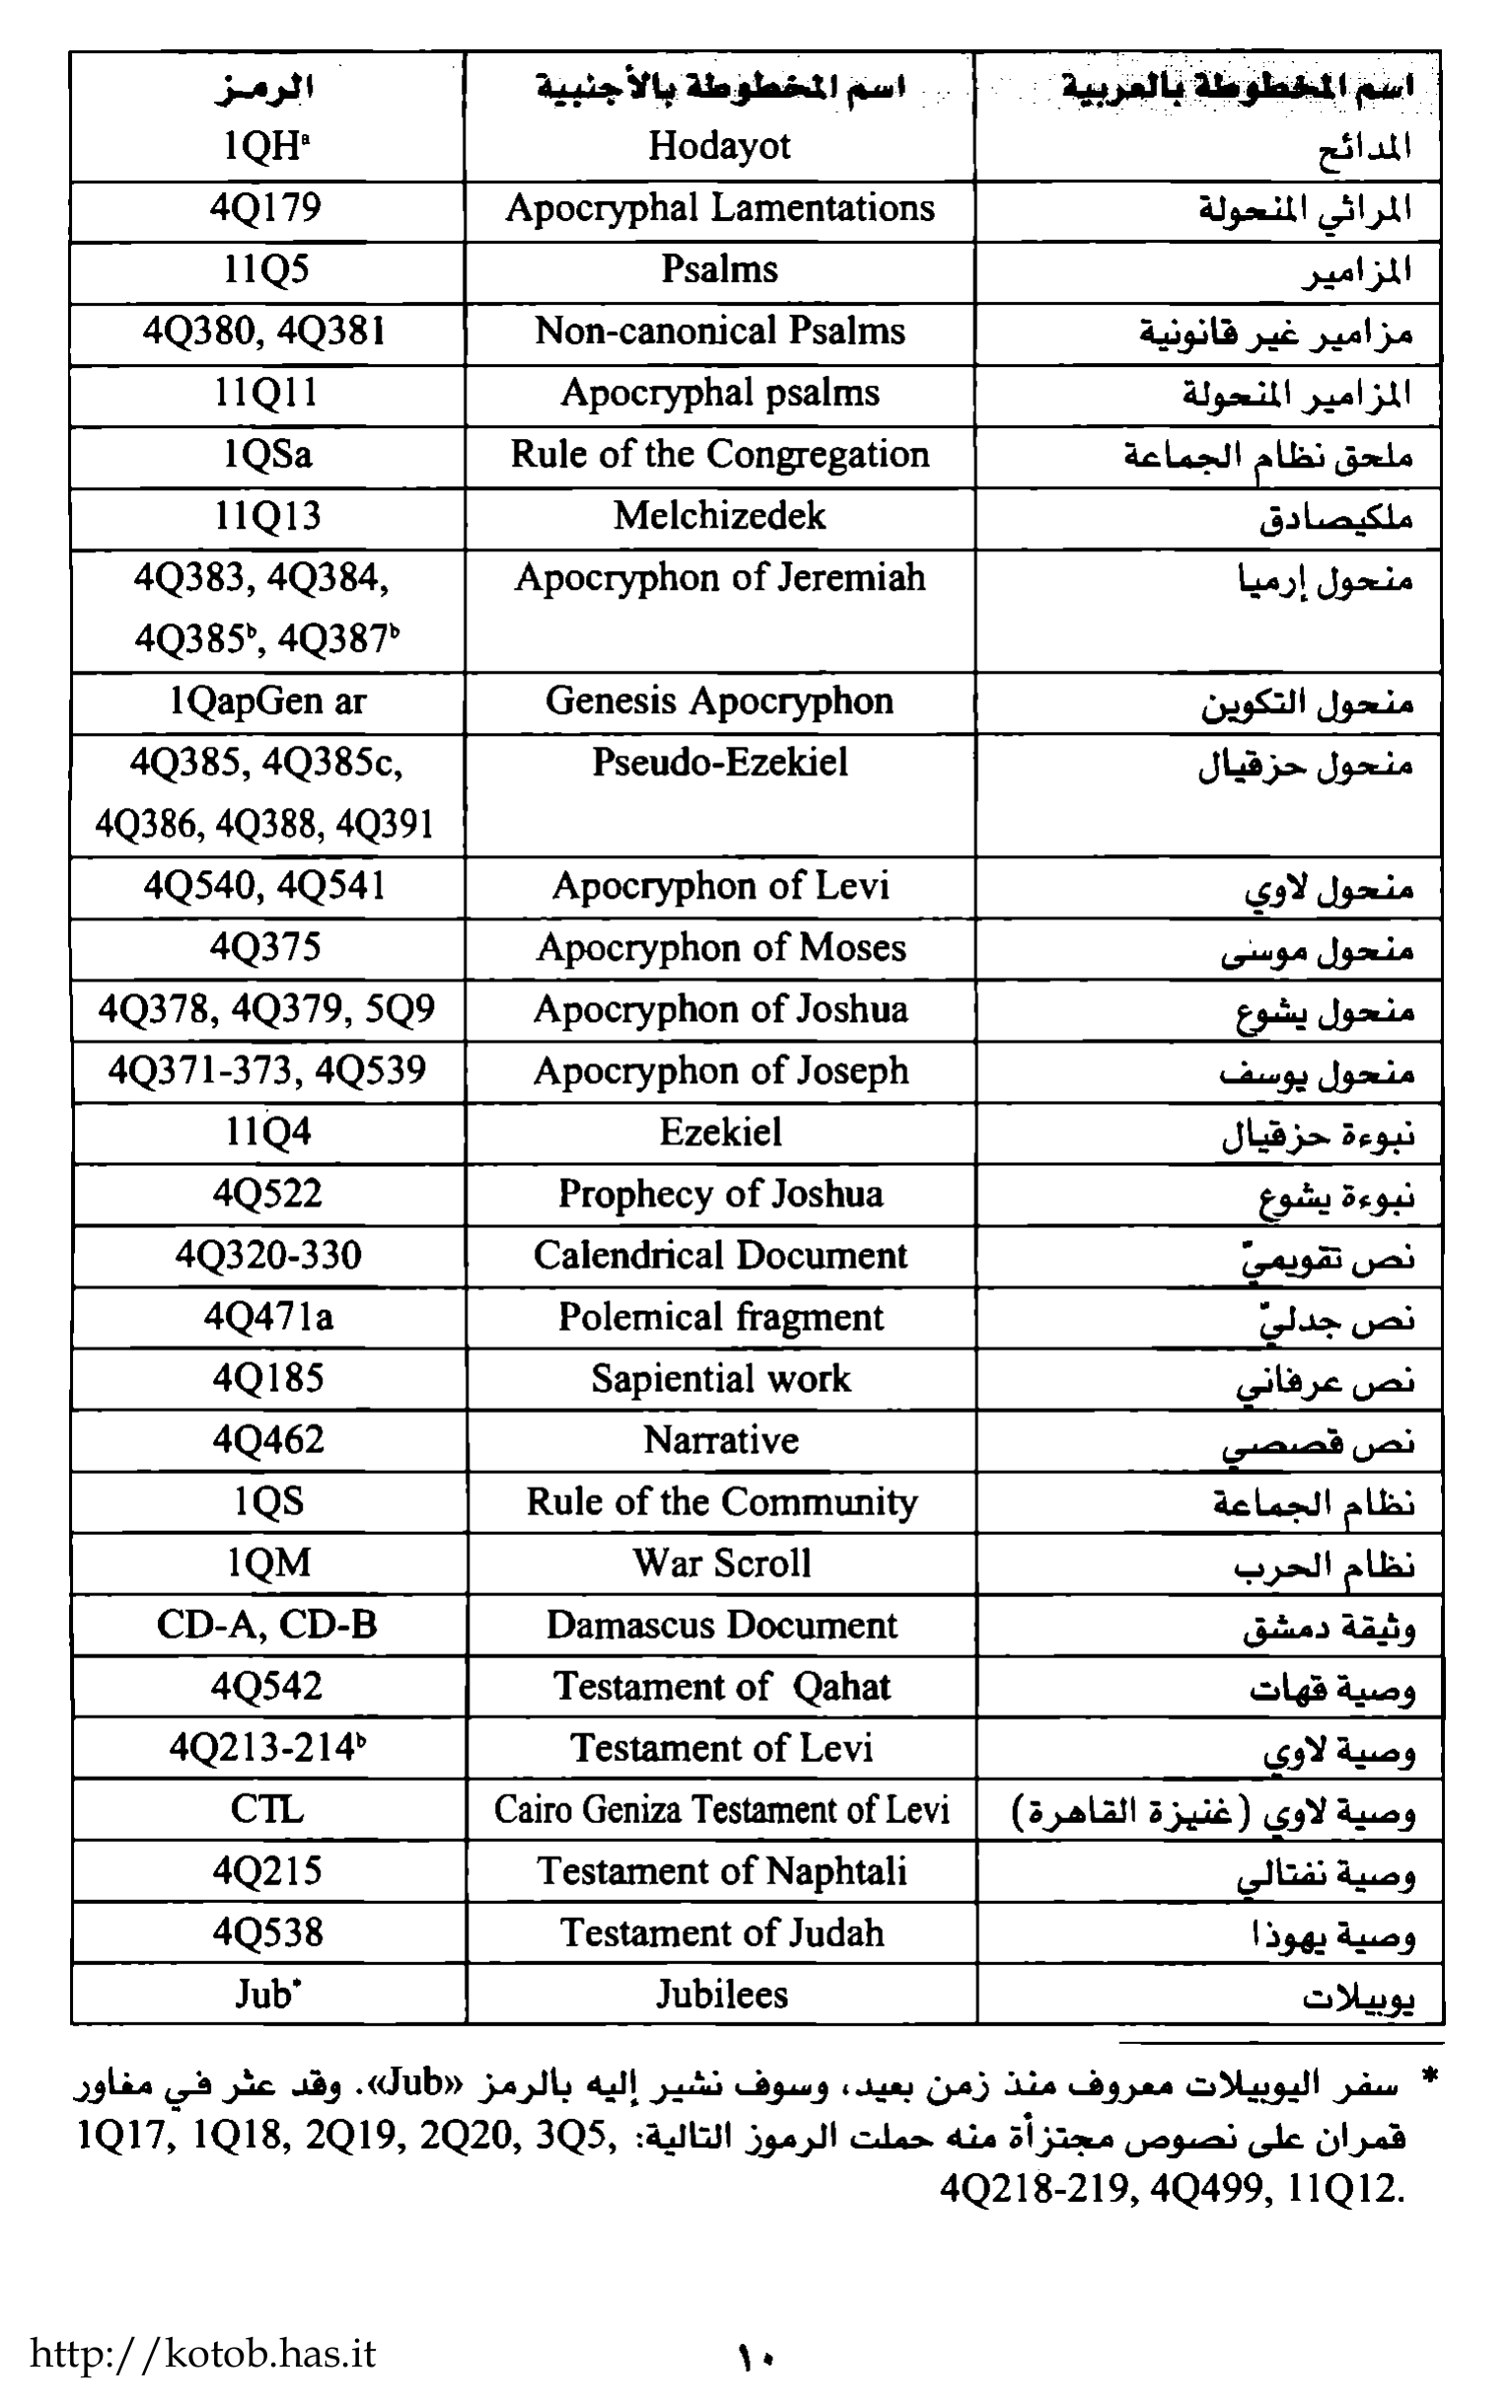 اسم المخطوطة بالعربية	اسم المخطوطة بالأجنبية	الرمز
المدائح	Hodayot	1QHᵃ
المراثي المنحولة	Apocryphal Lamentations	4Q179
المزامير	Psalms	11Q5
مزامير غير قانونية	Non-canonical Psalms	4Q380, 4Q381
المزامير المنحولة	Apocryphal psalms	11Q11
ملحق نظام الجماعة	Rule of the Congregation	1QSa
ملكيصادق	Melchizedek	11Q13
منحول إرميا	Apocryphon of Jeremiah	4Q383, 4Q384,
4Q385ᵇ, 4Q387ᵇ
منحول التكوين	Genesis Apocryphon	1QapGen ar
منحول حزقيال	Pseudo-Ezekiel	4Q385, 4Q385c,
4Q386, 4Q388, 4Q391
منحول لاوي	Apocryphon of Levi	4Q540, 4Q541
منحول موسى	Apocryphon of Moses	4Q375
منحول يشوع	Apocryphon of Joshua	4Q378, 4Q379, 5Q9
منحول يوسف	Apocryphon of Joseph	4Q371-373, 4Q539
نبوءة حزقيال	Ezekiel	11Q4
نبوءة يشوع	Prophecy of Joshua	4Q522
نص تقويميّ	Calendrical Document	4Q320-330
نص جدليّ	Polemical fragment	4Q471a
نص عرفاني	Sapiential work	4Q185
نص قصصي	Narrative	4Q462
نظام الجماعة	Rule of the Community	1QS
نظام الحرب	War Scroll	1QM
وثيقة دمشق	Damascus Document	CD-A, CD-B
وصية قهات	Testament of Qahat	4Q542
وصية لاوي	Testament of Levi	4Q213-214ᵇ
وصية لاوي (غنيزة القاهرة)	Cairo Geniza Testament of Levi	CTL
وصية نفتالي	Testament of Naphtali	4Q215
وصية يهوذا	Testament of Judah	4Q538
يوبيلات	Jubilees	Jub*
* سفر اليوبيلات معروف منذ زمن بعيد، وسوف نشير إليه بالرمز «Jub». وقد عثر في مغاور
قمران على نصوص مجتزأة منه حملت الرموز التالية: 1Q17, 1Q18, 2Q19, 2Q20, 3Q5,
4Q218-219, 4Q499, 11Q12.
http://kotob.has.it
١٠